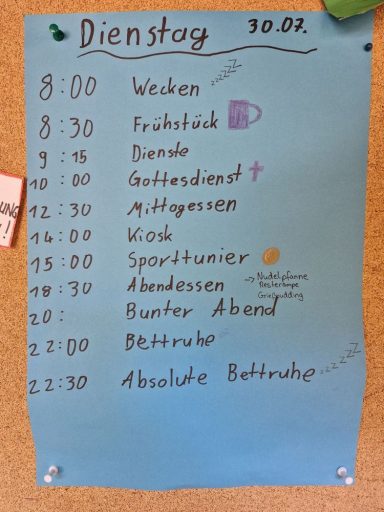 Dienstag 30.07.
8:00 Wecken zzzzzz
8:30 Frühstück
9:15 Dienste
10:00 Gottesdienst
12:30 Mittagessen
14:00 Kiosk
15:00 Sporttunier
18:30 Abendessen → Nudelpfanne
Resterampe
Grießpudding
20: Bunter Abend
22:00 Bettruhe
22:30 Absolute Bettruhe zzzzzz
UNG
!